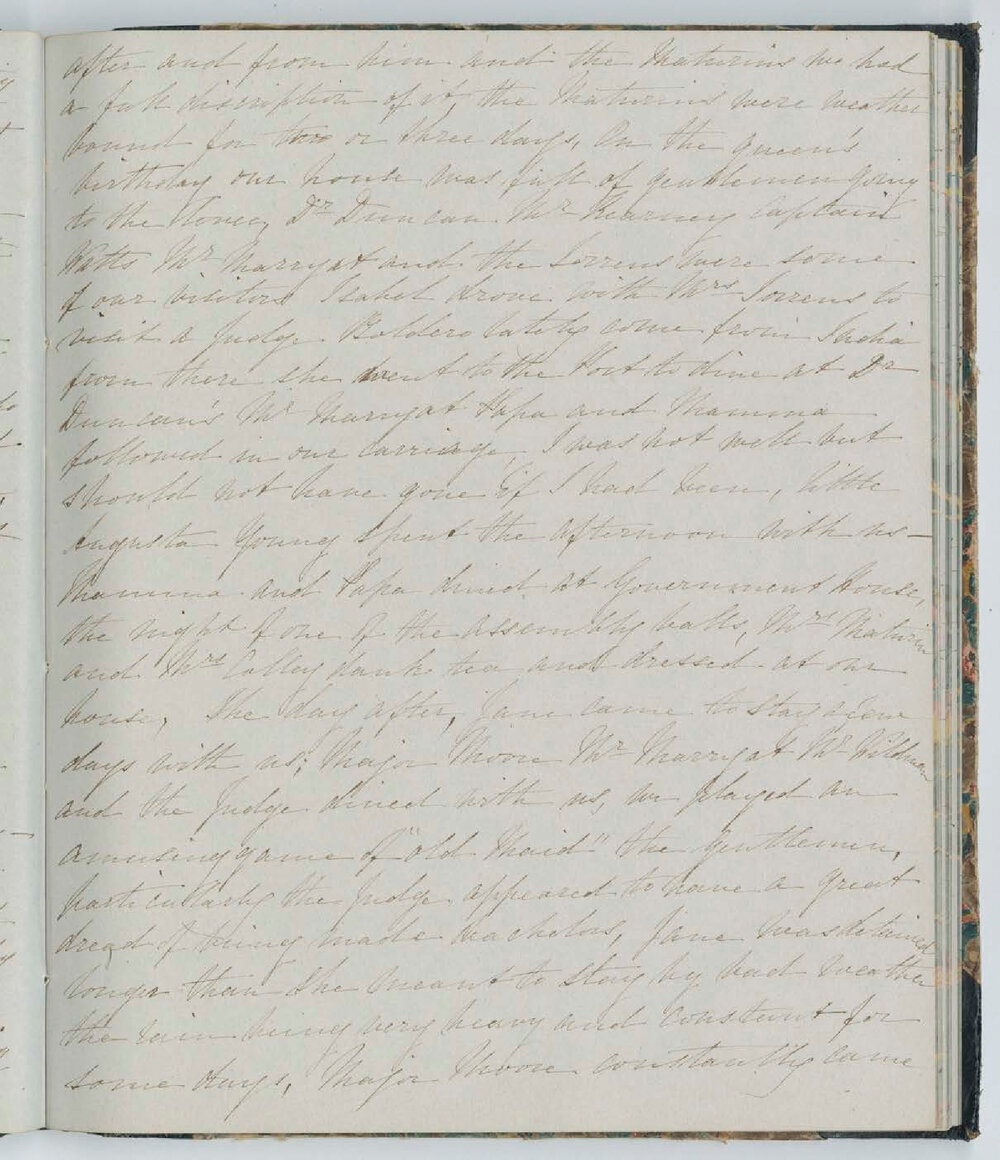 after and from him and the Maturins we had
a full discription of it, the Maturins were weather
bound for two or three days, On the queen's
birthday our house was full of gentlemen going
to the Levee, Dr Duncan Mr Kearney Captain
Watts Mr Marryat and the Sorrens were some
of our visitors Isabel drove with Mrs Sorrens to
visit a Judge Boldero lately come from India
from there she went to the Fort to dine at Dr
Duncan's Mr Marryat Papa and Mamma
followed in our carriage, I was not well but
should not have gone if I had been, little
Augusta Young spent the afternoon with us—
Mamma and Papa dined at Government House,
the night of one of the assembly balls, Mrs Maturin
and Mrs Colley dank tea and dressed at our
house, The day after, Jane came to stay a few
days with us; Major Moore Mr Marryat Mr Wildman
and the Judge dined with us, we played an
amusing game of "old Maid" the gentlemen,
particularly the Judge appeared to have a great
dread of being made bachelors, Jane was detained
longer than she meant to stay by bad weather
the rain being very heavy and constant for
some days, Major Moore constantly came